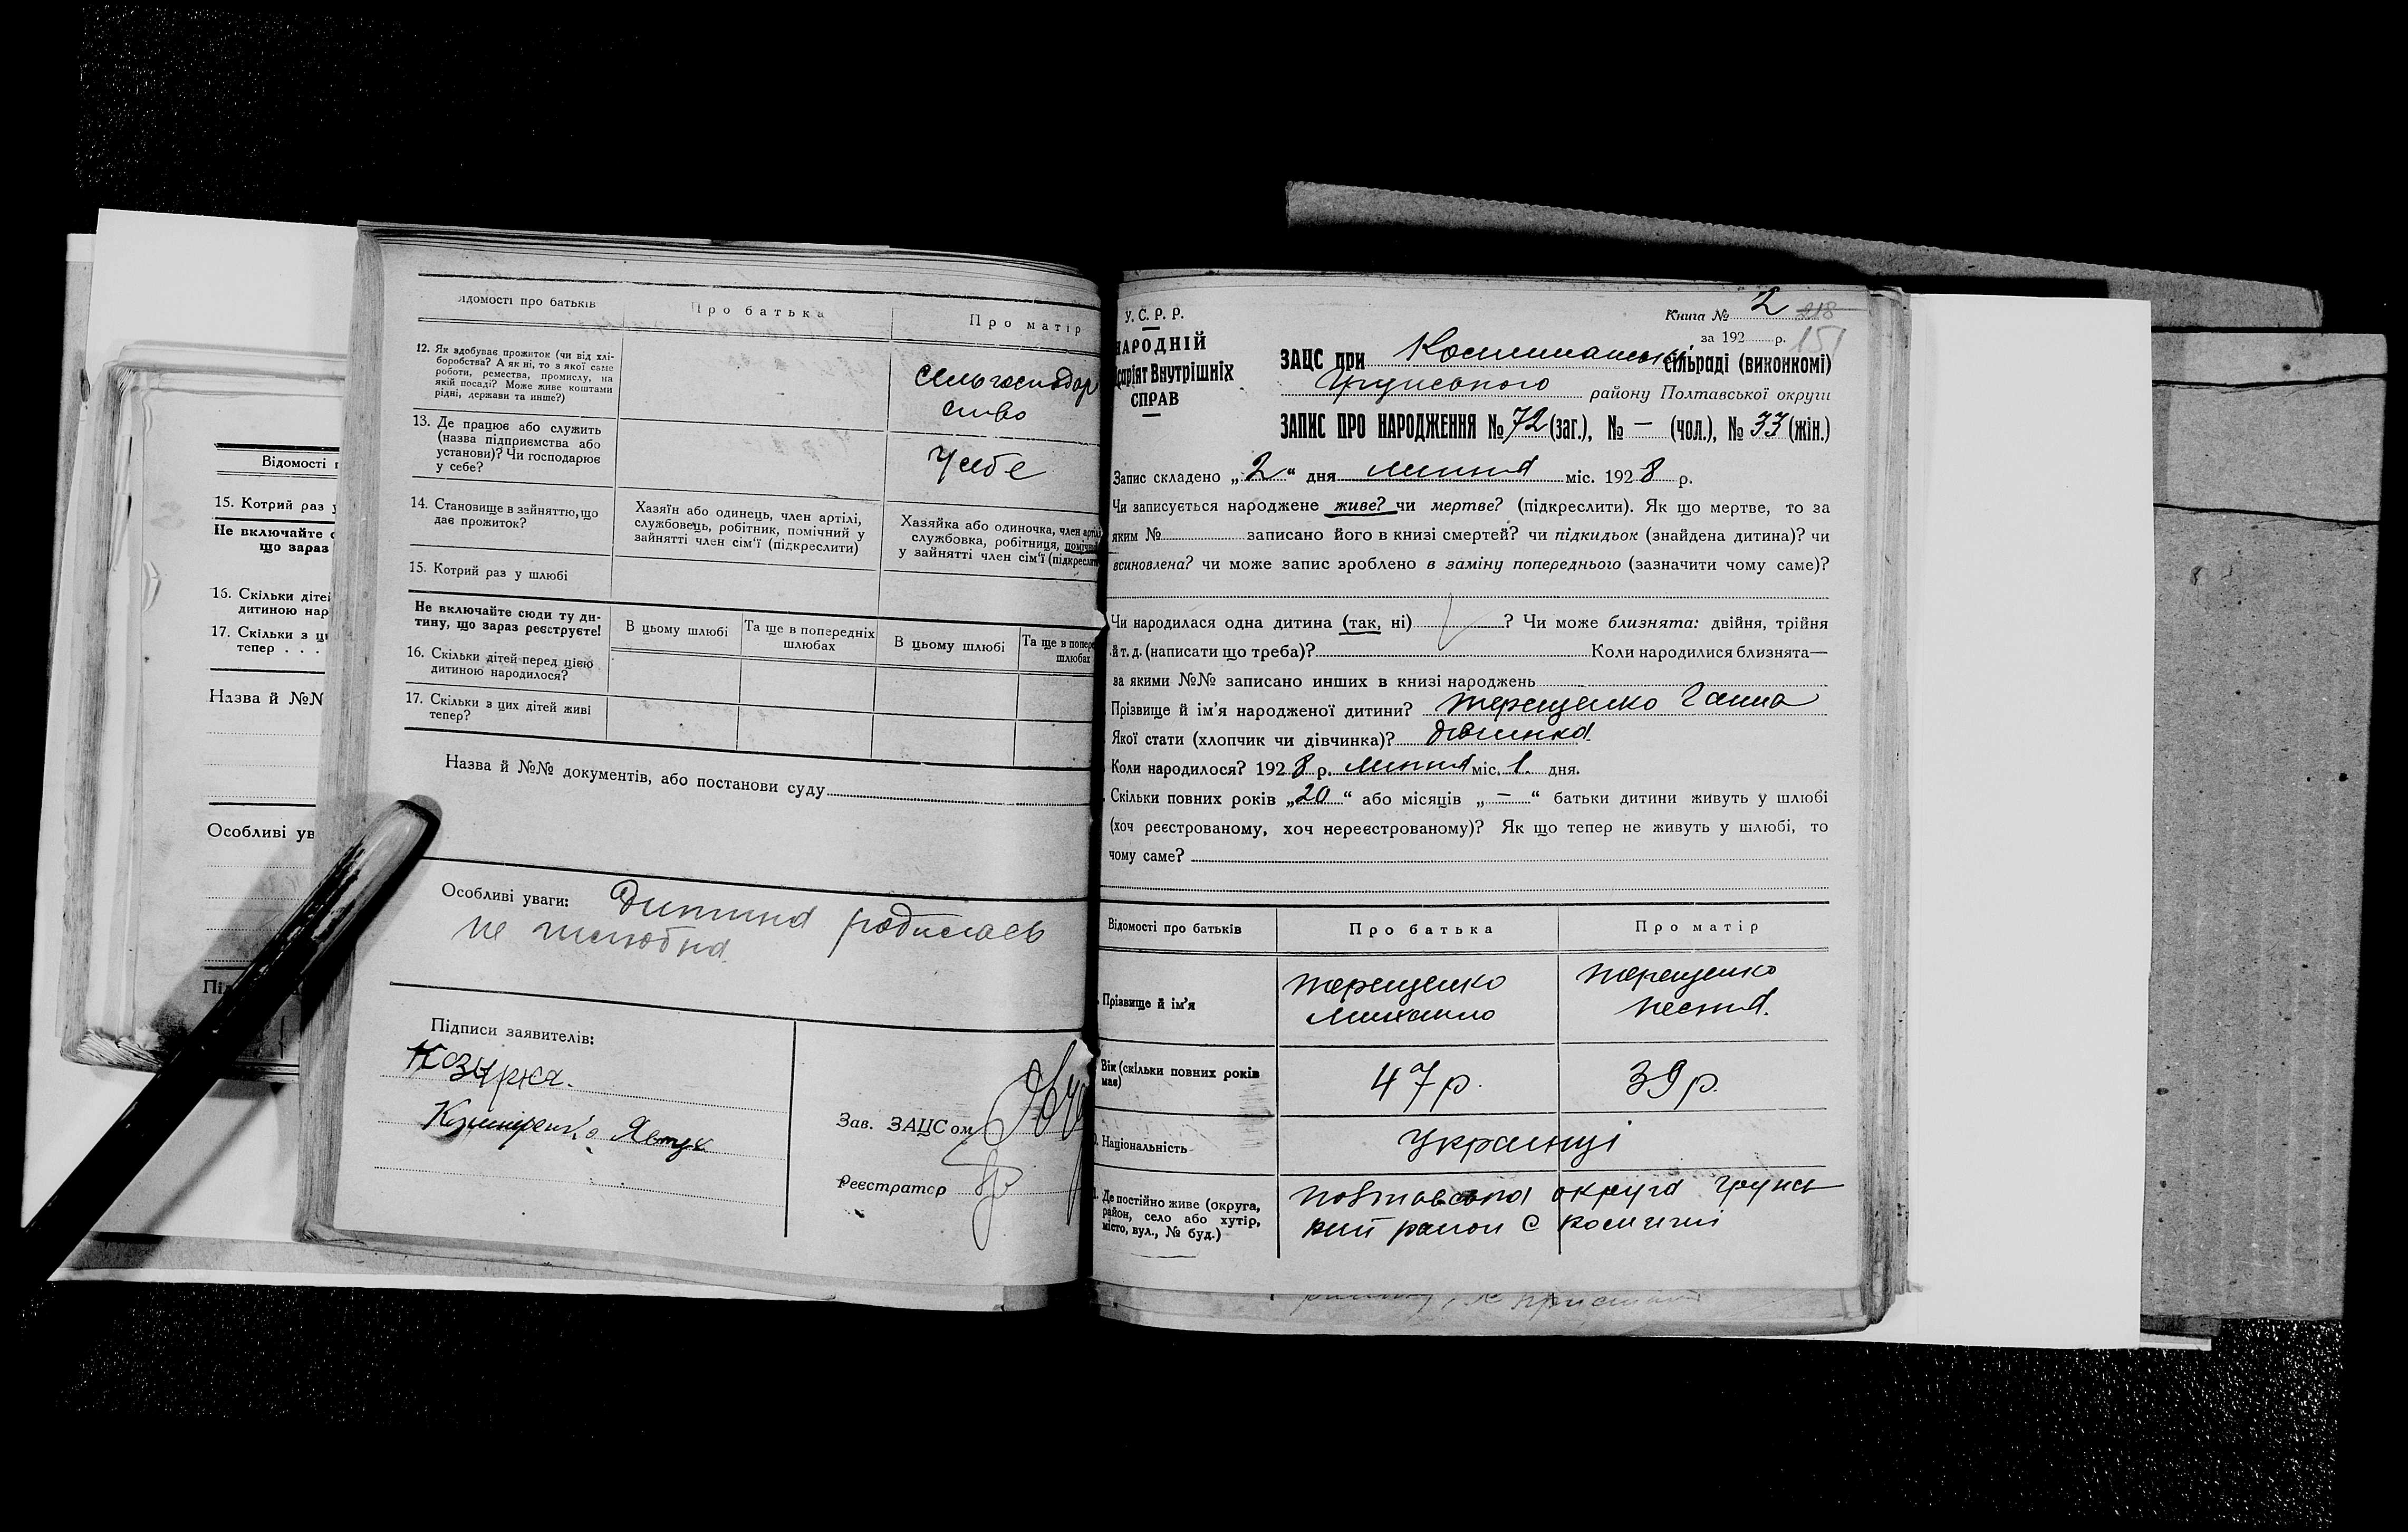 Відомості
15. Котрий раз у
Не включайте
що зараз
16. Скільки дітей
дитиною нар
17. Скільки з ци
тепер . . .
Назва й №№
Особливі ув
Під
ідомості про батьків
Про батька
Про матір
12. Як здобуває прожиток (чи від хлі-
боробства? А як ні, то з якої саме
роботи, ремества, промислу, на
якій посаді? Може живе коштами
рідні, держави та инше?)
сельгосподар
ство
13. Де працює або служить
(назва підприємства або
установи)? Чи господарює
у себе?
У себе
14. Становище в зайняттю, що
дає прожиток?
Хазяїн або одинець, член артілі,
службовець, робітник, помічний у
зайнятті член сім'ї (підкреслити)
Хазяйка або одиночка, член артілі
службовка, робітниця, помічна
у зайнятті член сім'ї (підкреслити
15. Котрий раз у шлюбі
Не включайте сюди ту ди-
тину, що зараз реєструєте!
В цьому шлюбі
Та ще в попередніх
шлюбах
В цьому шлюбі
Та ще в попере
шлюбах
16. Скільки дітей перед цією
дитиною народилося?
17. Скільки з цих дітей живі
тепер?
Назва й №№ документів, або постанови суду
Особливі уваги: Дитина родилась
не шлюбна
Підписи заявителів:
Козирка.
Зав. ЗАЦСом
Реєстратор
У. С. Р. Р.
НАРОДНІЙ
Внутрішніх
СПРАВ
Книга № 2 218
за 192 р. 151
ЗАЦС при сільраді (виконкомі)
Грунського району Полтавської округи
ЗАПИС ПРО НАРОДЖЕННЯ № 72 (заг.), № — (чол.), № 33 (жін.)
Запис складено „2“ дня липня міс. 1928 р.
Чи записується народжене живе? чи мертве? (підкреслити). Як що мертве, то за
яким № записано його в книзі смертей? чи підкидьок (знайдена дитина)? чи
всиновлена? чи може запис зроблено в заміну попереднього (зазначити чому саме)?
Чи народилася одна дитина (так, ні) ? Чи може близнята: двійня, трійня
й т. д. (написати що треба)? Коли народилися близнята—
за якими №№ записано инших в книзі народжень
Прізвище й ім'я народженої дитини? Терещенко Ганна
Якої стати (хлопчик чи дівчинка)? дівчинка
Коли народилося? 1928 р. липня міс. 1. дня.
Скільки повних років „20“ або місяців „—“ батьки дитини живуть у шлюбі
(хоч реєстрованому, хоч нереєстрованому)? Як що тепер не живуть у шлюбі, то
чому саме?
Відомості про батьків
Про батька
Про матір
Прізвище й ім'я
Терещенко
Михаило
Терещенко
Настя.
Вік (скільки повних років
має)
47 р.
39 р.
Національність
Украінці
Де постійно живе (округа,
район, село або хутір,
місто, вул., № буд.)
Повтавська округа Грунсь
кий район с